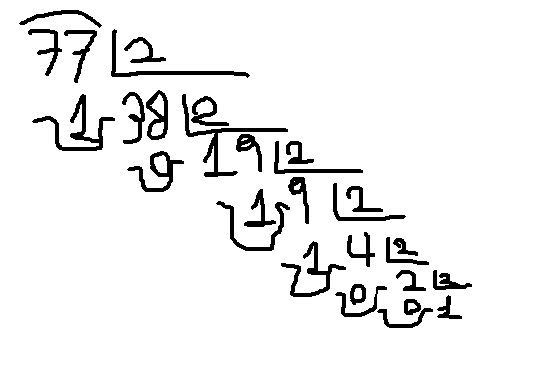 77 2
1 38 2
0 19 2
1 9 2
1 4 2
0 2 2
0 1